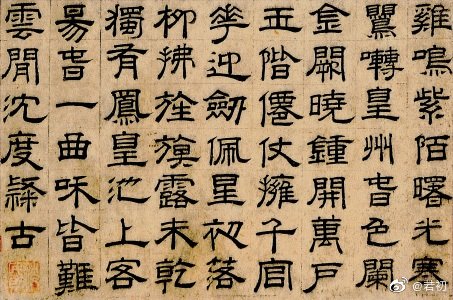 雞鳴紫陌曙光寒
鸎囀皇州旾色闌
金闕曉鍾開萬戶
玉階僊仗擁千官
花迎劒佩星初落
柳拂旌旗露未乾
獨有鳳皇池上客
昜旾一曲咊皆難
雲閒沈度隸古
@若初